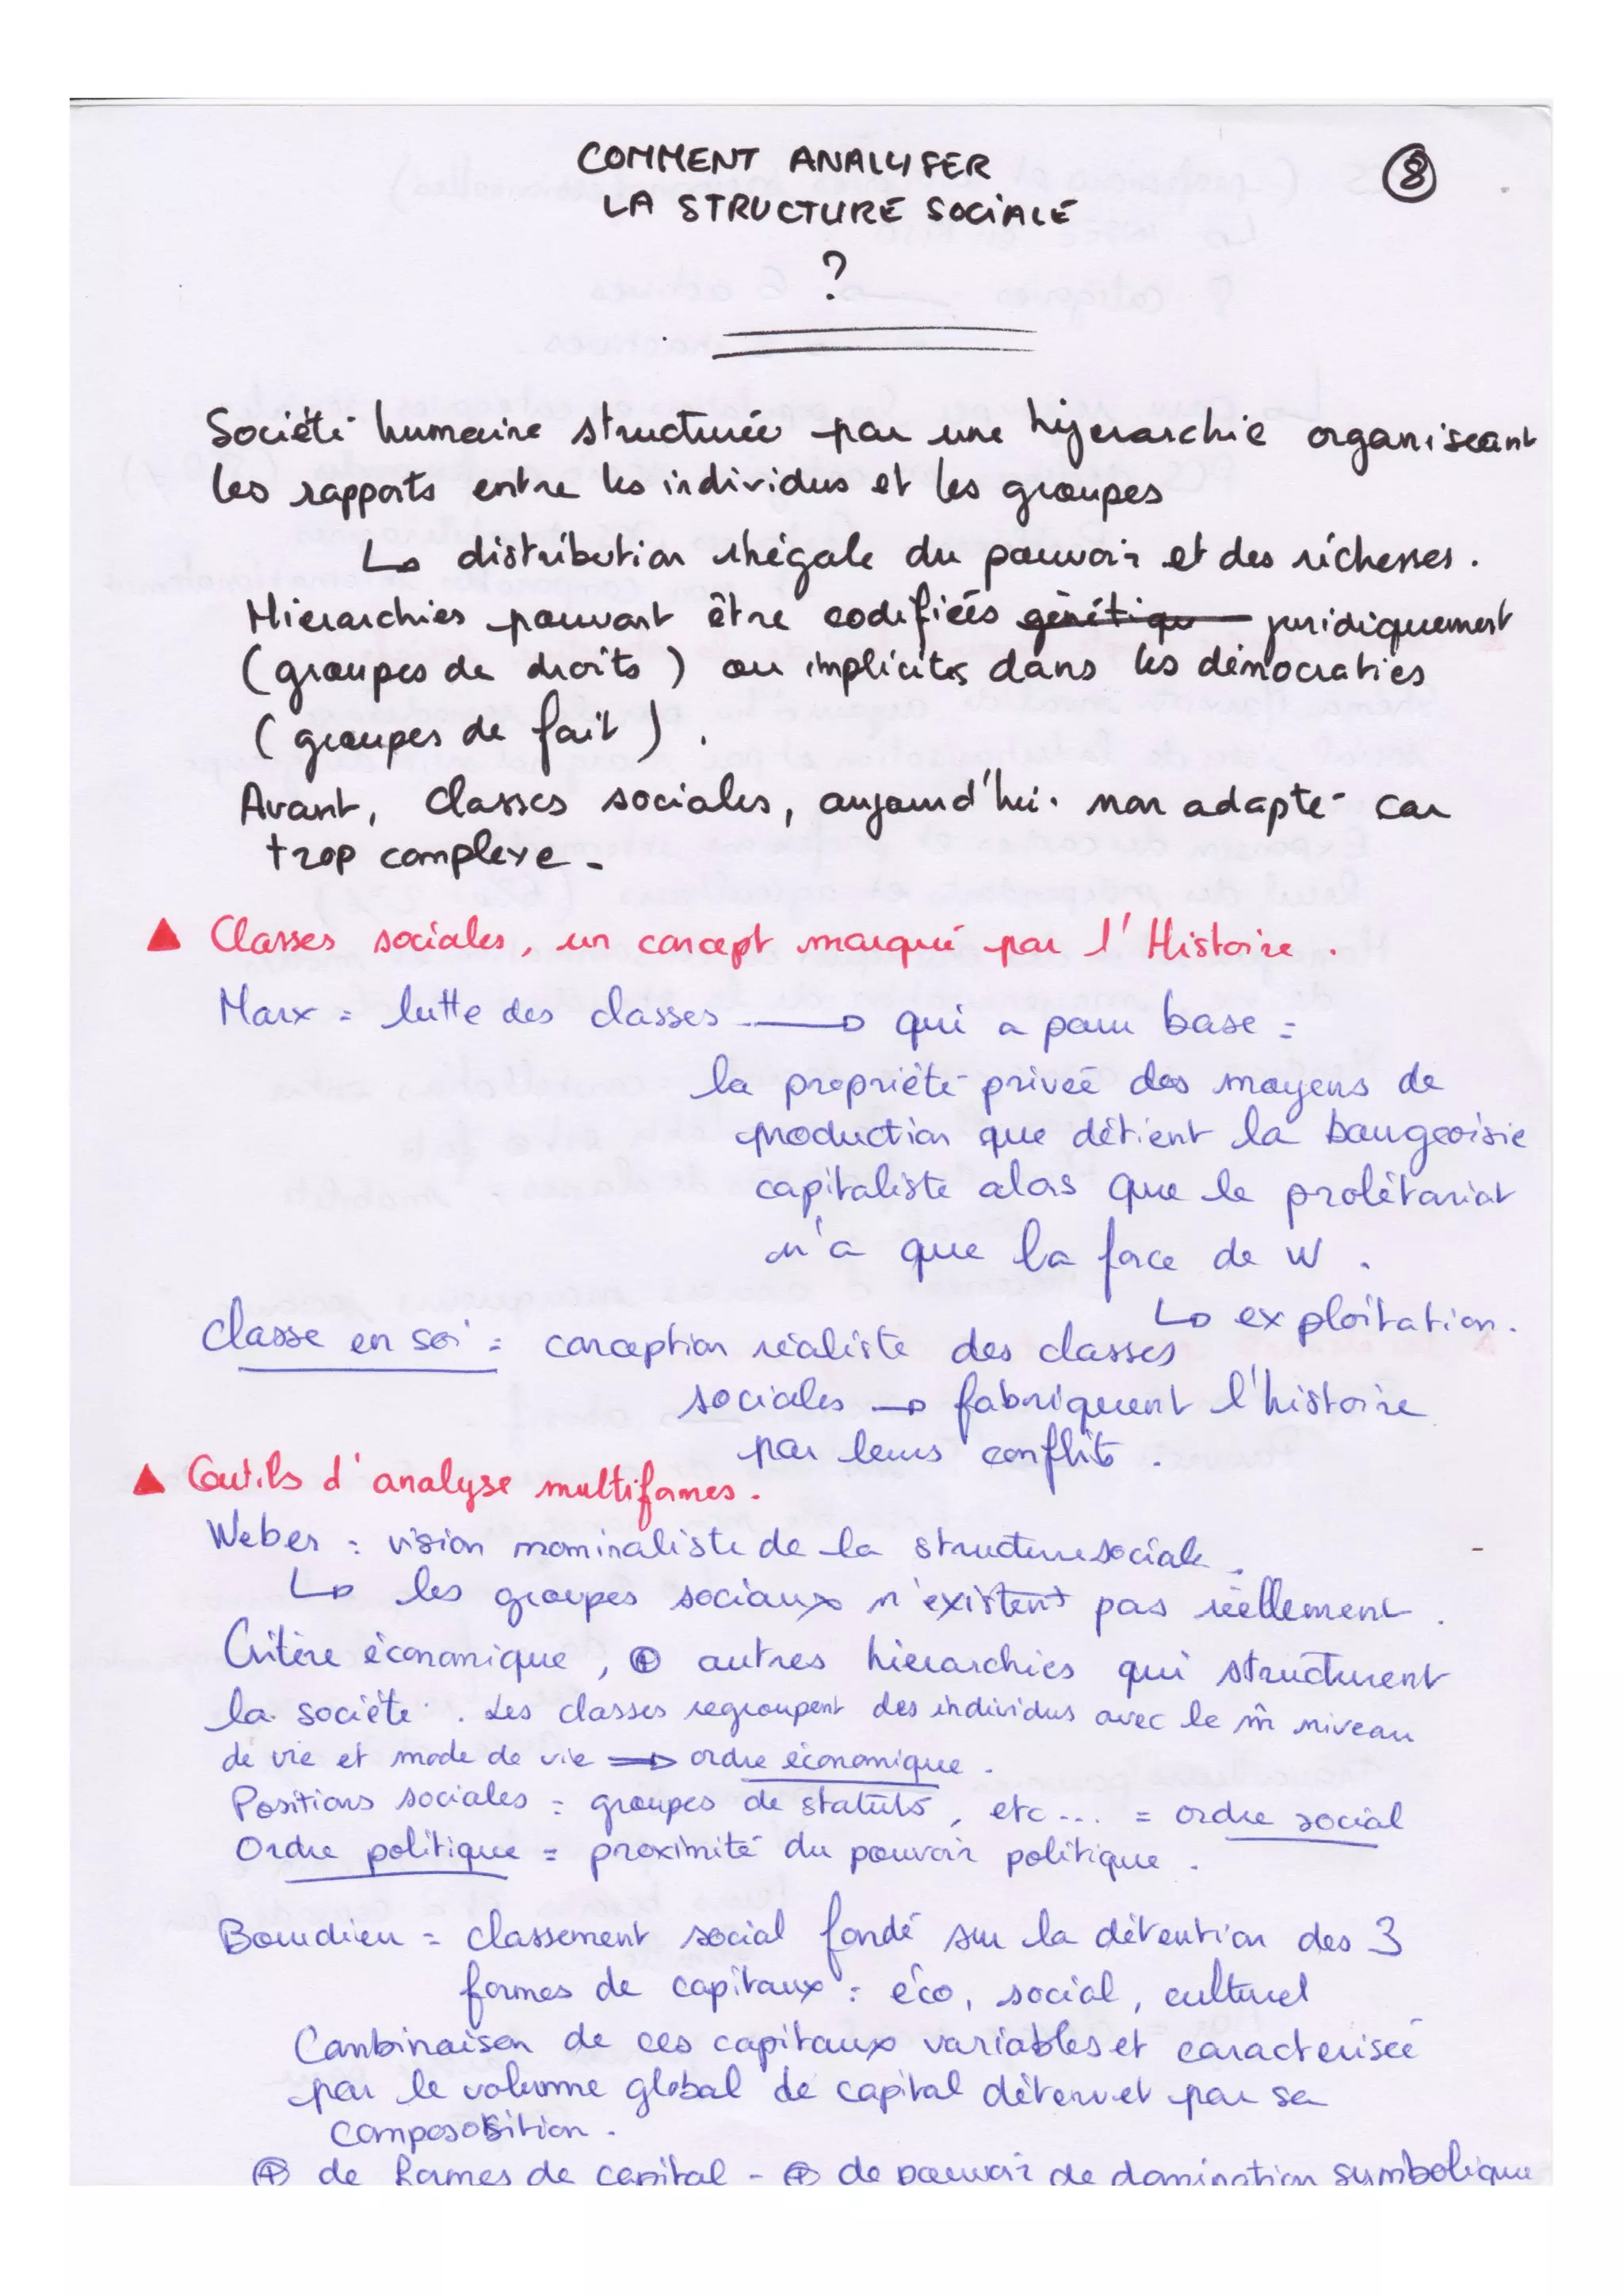 COMMENT ANALYSER
⑧
LA STRUCTURE SOCIALE
?
Société humaine structurée par une hyerarchie organiseant
les rapports entre les individus et les groupes
↳ distribution inégale du pouvoir et des richesses.
Hierarchies pouvant être codifiées génétiqu juridiquement
(groupes de droits) ou implicites dans les démocraties
(groupes de fait).
Avant, classes sociales, aujourd'hui non adapté car
trop complexe.
▲ Classes sociales, un concept marqué par l'Histoire.
Marx = lutte des classes → qui a pour base =
la propriété privée des moyens de
production que détient la bourgeoisie
capitaliste alors que le prolétariat
n'a que la force de W.
↳ exploitation.
Classe en soi = conception réaliste des classes
sociales → fabriquent l'histoire
par leurs conflits.
▲ Outils d'analyse multiformes.
Weber : vision nominaliste de la structure sociale.
↳ les groupes sociaux n'existent pas réellement.
Critère économique, ⊕ autres hierarchies qui structurent
la société. Les classes regroupent des individus avec le m̂ niveau
de vie et mode de vie ⇒ ordre économique.
Positions sociales = groupes de statuts, etc... = ordre social
Ordre politique = proximité du pouvoir politique.
Bourdieu = classement social fondé sur la détention des 3
formes de capitaux : éco, social, culturel
Combinaison de ces capitaux variables et caracterisée
par le volume global de capital détenu et par sa
composobsition.
⊕ de formes de capital - ⊕ de pouvoir de domination symbolique